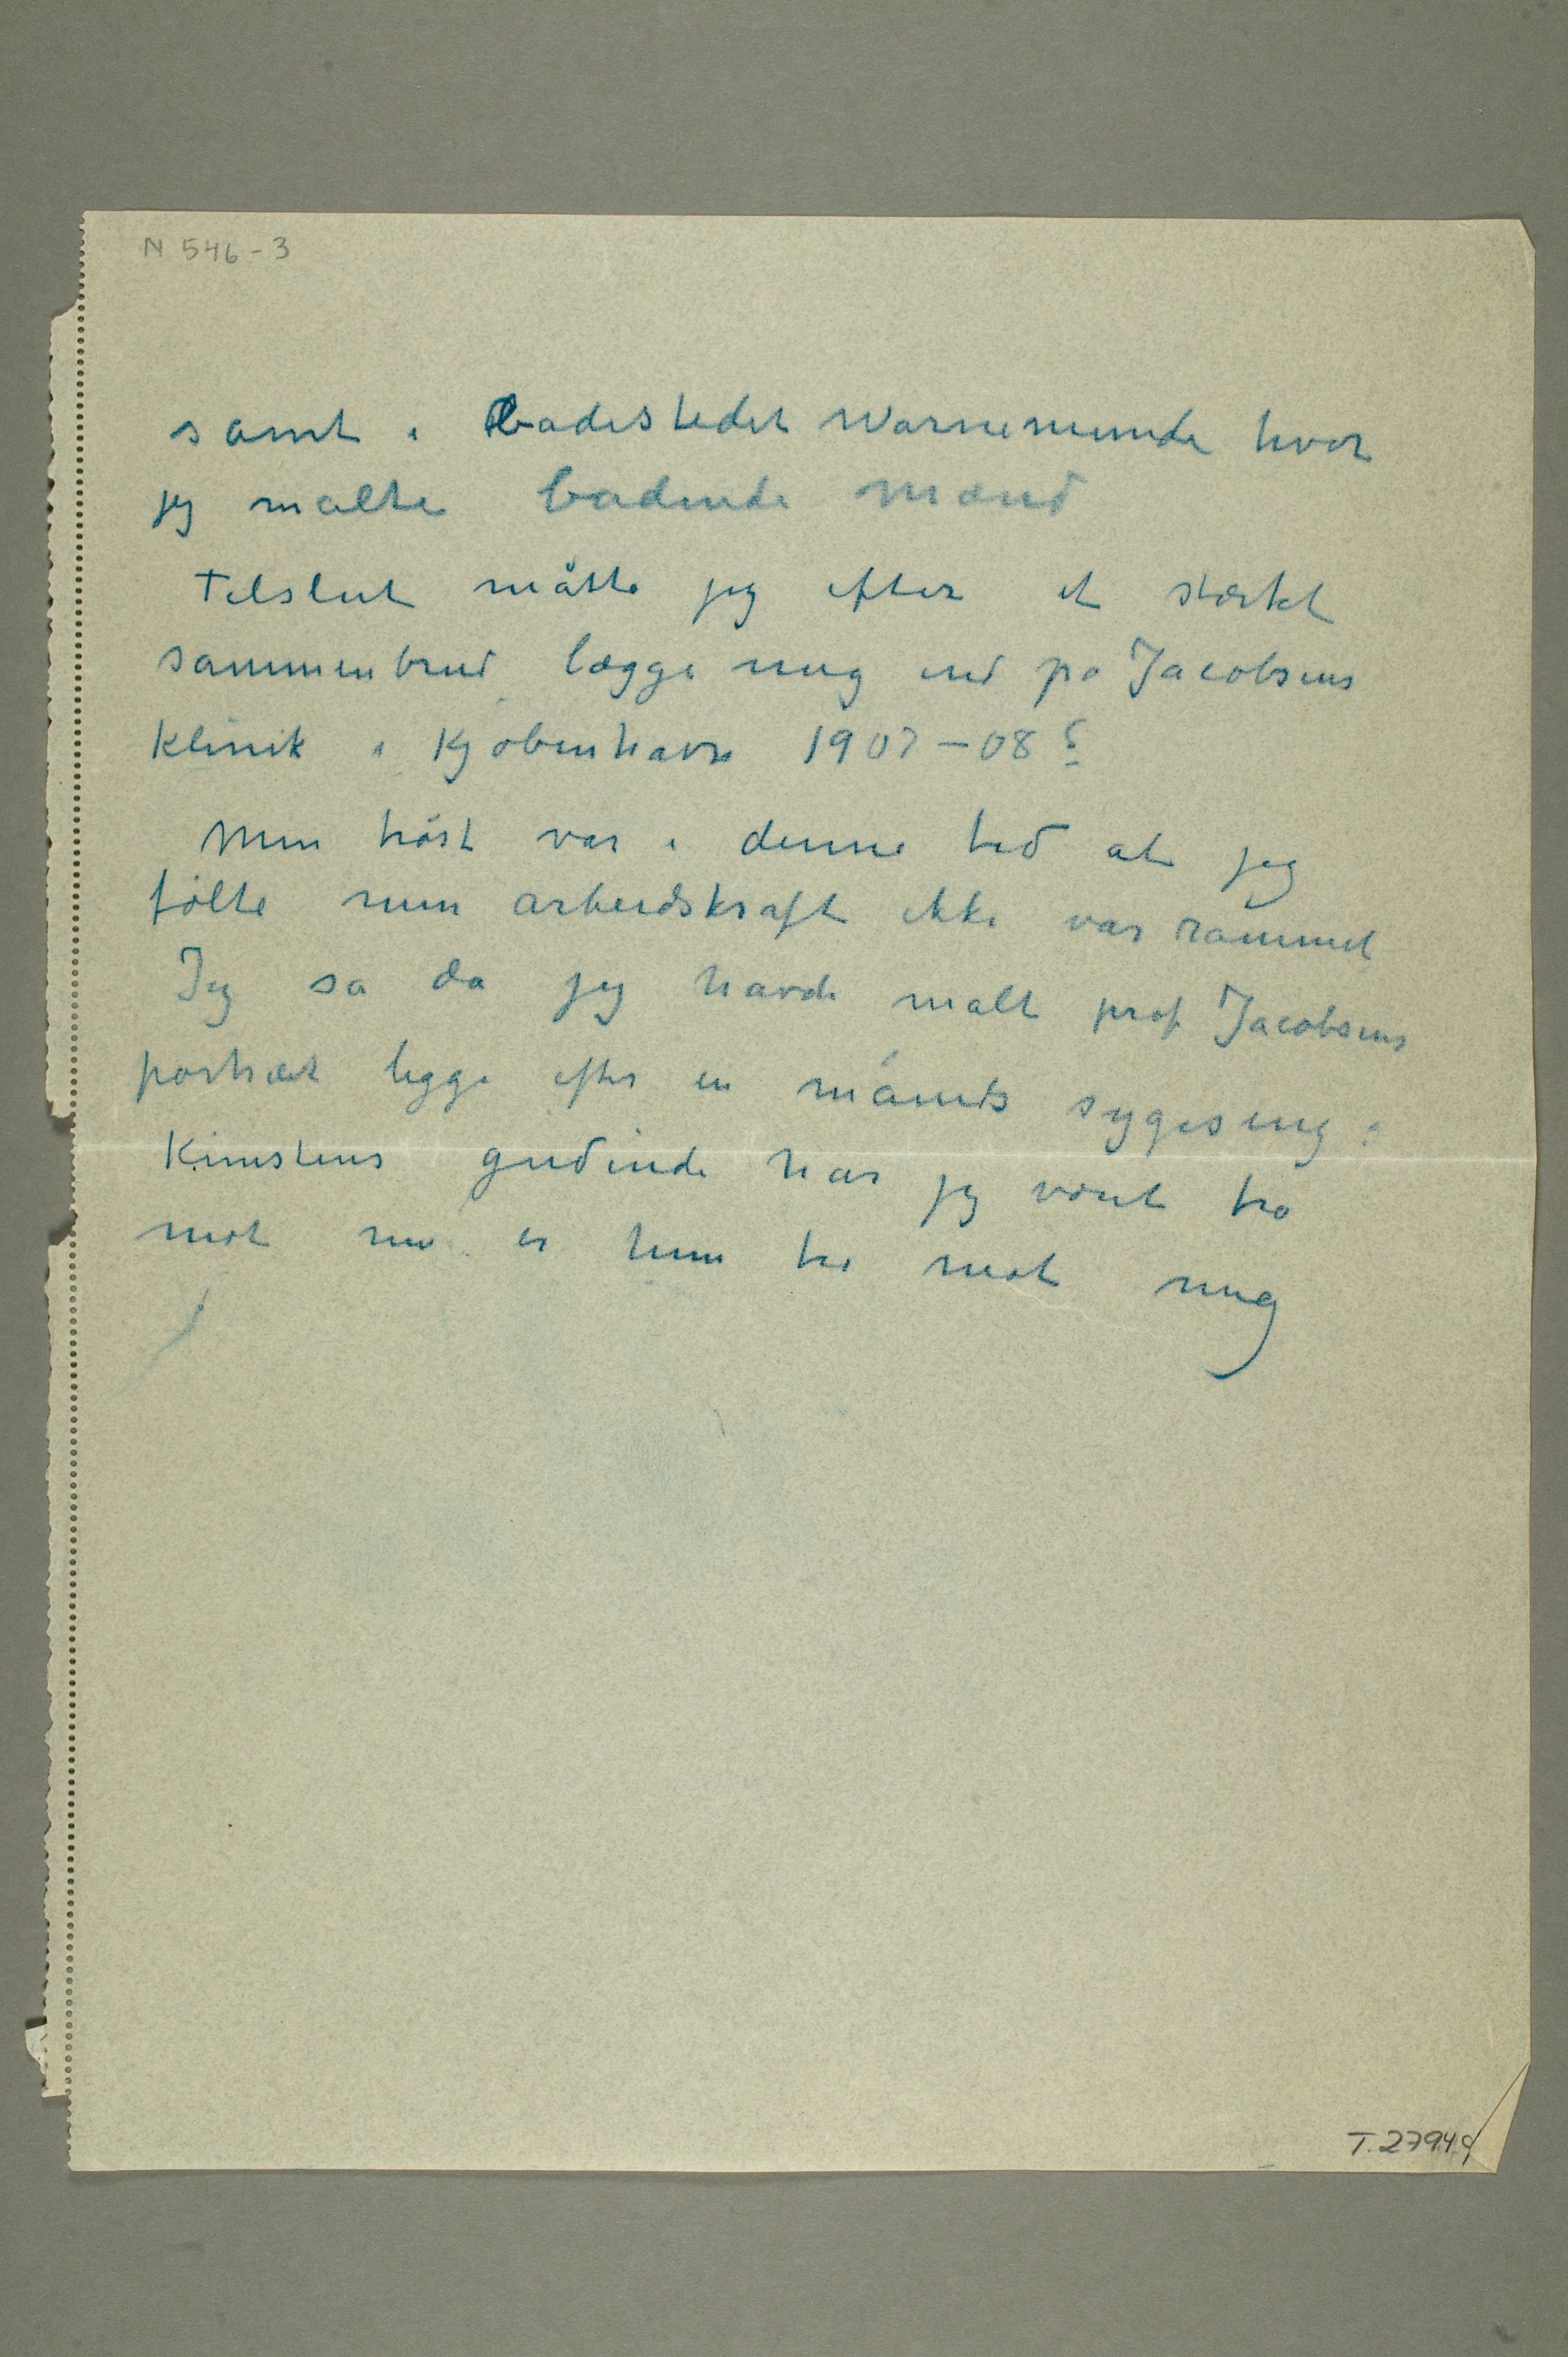 N 546-3
samt i Badestedet Warnemunde hvor
jeg malte badende mænd
Tilslut måtte jeg efter et stærkt
sammenbrud lægge mig ind på Jacobsens
klinik i Kjøbenhavn 1907-08?
Min trøst var i denne tid at jeg
følte min arbeidskraft ikke var rammet
Jeg sa da jeg havde malt prof Jacobsens
portræt ligge efter en måneds sygeseng:
Kunstens gudinde har jeg vært tro
mot nu er hun tro mot mig
T.27949